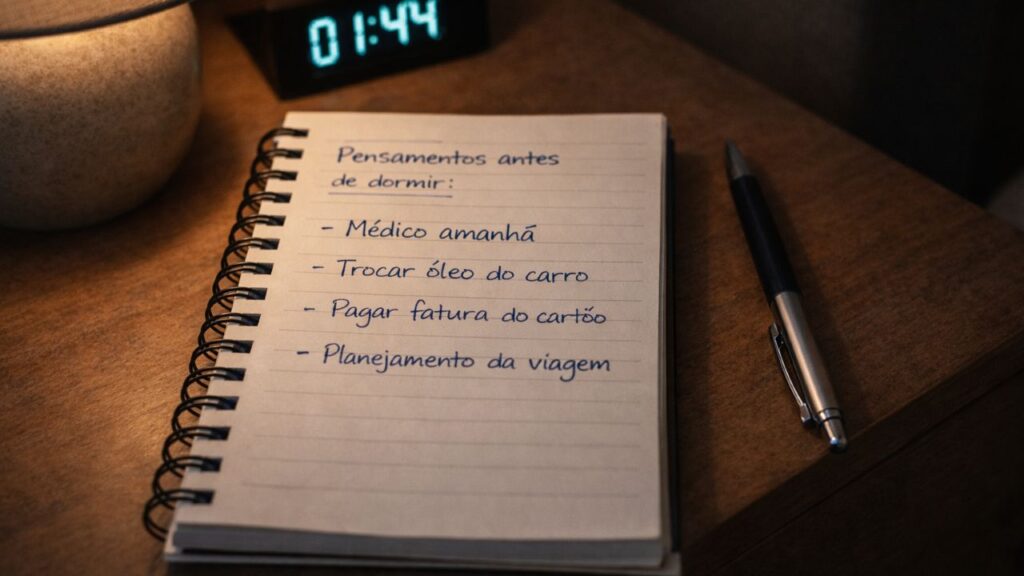 01:44
Pensamentos antes
de dormir:
- Médico amanhã
- Trocar óleo do carro
- Pagar fatura do cartõo
- Planejamento da viagem